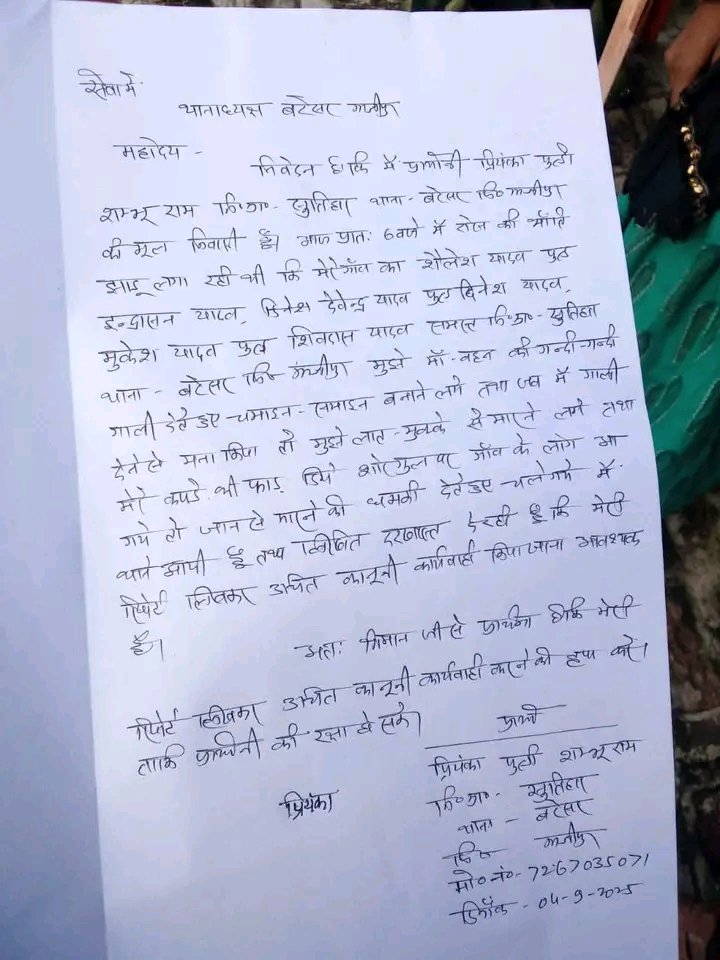 सेवा में
थानाध्यक्ष बरेसर गाजीपुर
महोदय -
निवेदन है कि मैं प्रार्थिनी प्रियंका पुत्री
शम्भू राम नि०ग्रा०- खुतिहा थाना- बरेसर जि० गाजीपुर
की मूल निवासी हूँ। आज प्रातः 6 बजे मैं रोज की भाँति
झाडू लगा रही थी कि मेरे गाँव का शैलेश यादव पुत्र
इन्द्रासन यादव, देवेन्द्र यादव पुत्र दिनेश यादव,
मुकेश यादव पुत्र शिवदास यादव समस्त नि०ग्रा०- खुतिहा
थाना- बरेसर जि० गाजीपुर मुझे माँ-बहन की गन्दी-गन्दी
गाली देते हुए चमाइन-समाइन बनाने लगे तथा जब मैं गाली
देने से मना किया तो मुझे लात-मुक्के से मारने लगे तथा
मेरे कपड़े भी फाड़ दिये शोरगुल पर गाँव के लोग आ
गये तो जान से मारने की धमकी देते हुए चले गये मैं
थाने आयी हूँ तथा लिखित दरखास्त दे रही हूँ कि मेरी
रिपोर्ट लिखकर उचित कानूनी कार्यवाही किया जाना आवश्यक
है।
अतः श्रीमान जी से प्रार्थना है कि मेरी
रिपोर्ट लिखकर उचित कानूनी कार्यवाही करने की कृपा करें।
ताकि प्रार्थिनी की रक्षा हो सके।
प्रार्थी
प्रियंका
प्रियंका पुत्री शम्भू राम
नि०ग्रा०- खुतिहा
थाना - बरेसर
जि० गाजीपुर
मो० नं०- 7267035071
दिनाँक - 04-9-2025